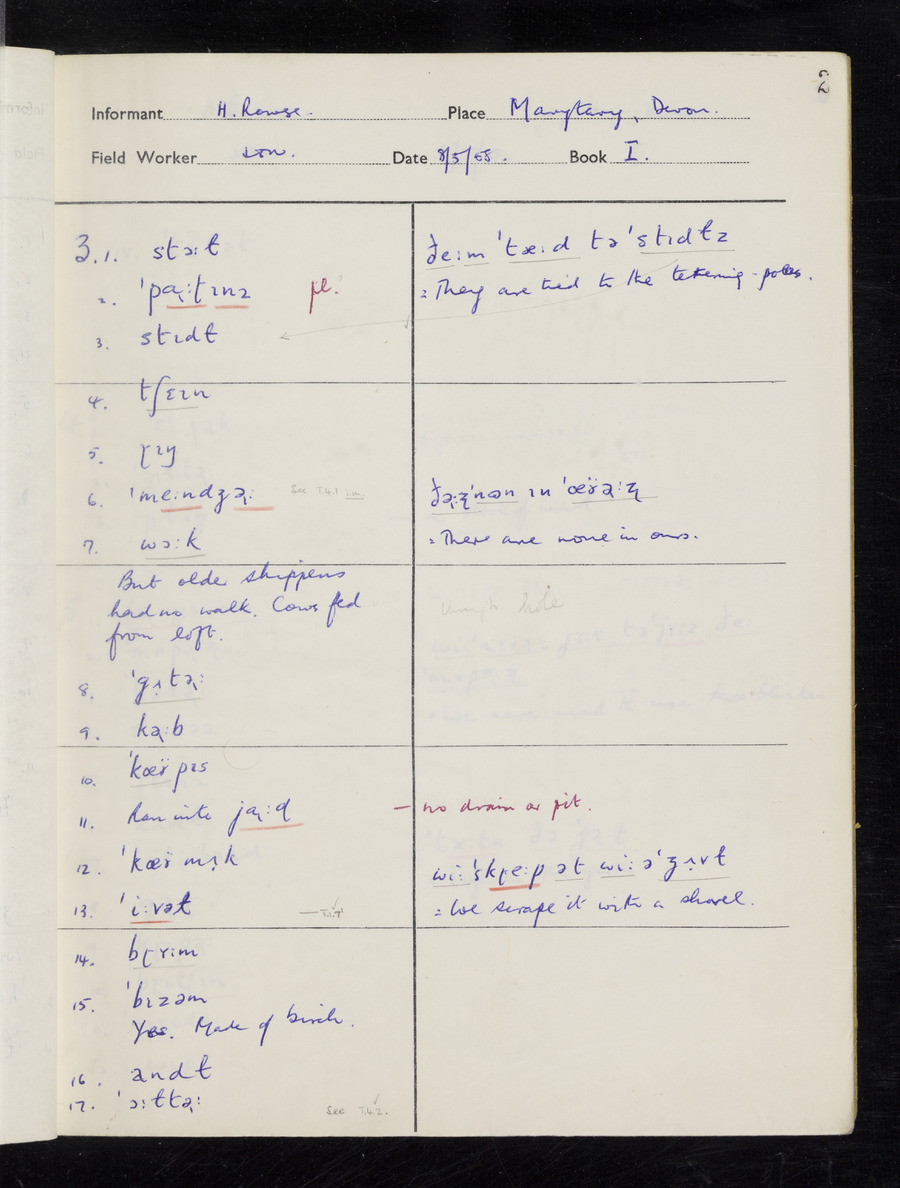 Informant H. Rowse. Place Marytavy, Devon.
Field Worker Date 8/5/58. Book I.
3.1. stɔːt
ðeːm ˈtæːd tə ˈstɪdtz
= They are tied to the tethering-poles.
2. ˈpaːtɪnz pl.
3. stɪdt
4. tʃɛɪn
5. ɽɪŋ
6. ˈmeːndʒəː See T.4.1 i.m.
ðəːzˈnən ɪn ˈœʏ̈əːz
= There are none in ours.
7. wɔːk
But older shippens
had no walk. Cows fed
from loft.
8. ˈgʌtəː
9. kəːb
10. ˈkœʏ̈ pɪs
11. Ran into jaːd — no drain or pit.
12. ˈkœʏ̈ mʌk
wiːˈskɽeːp ət wiːəˈʒʌvt
13. ˈiːvət
= We scrape it with a shovel.
14. bɽʏːm
15. ˈbɪzəm
Yes. Made of birch.
16. andt
17. ˈɔːttəː See T.4.2.